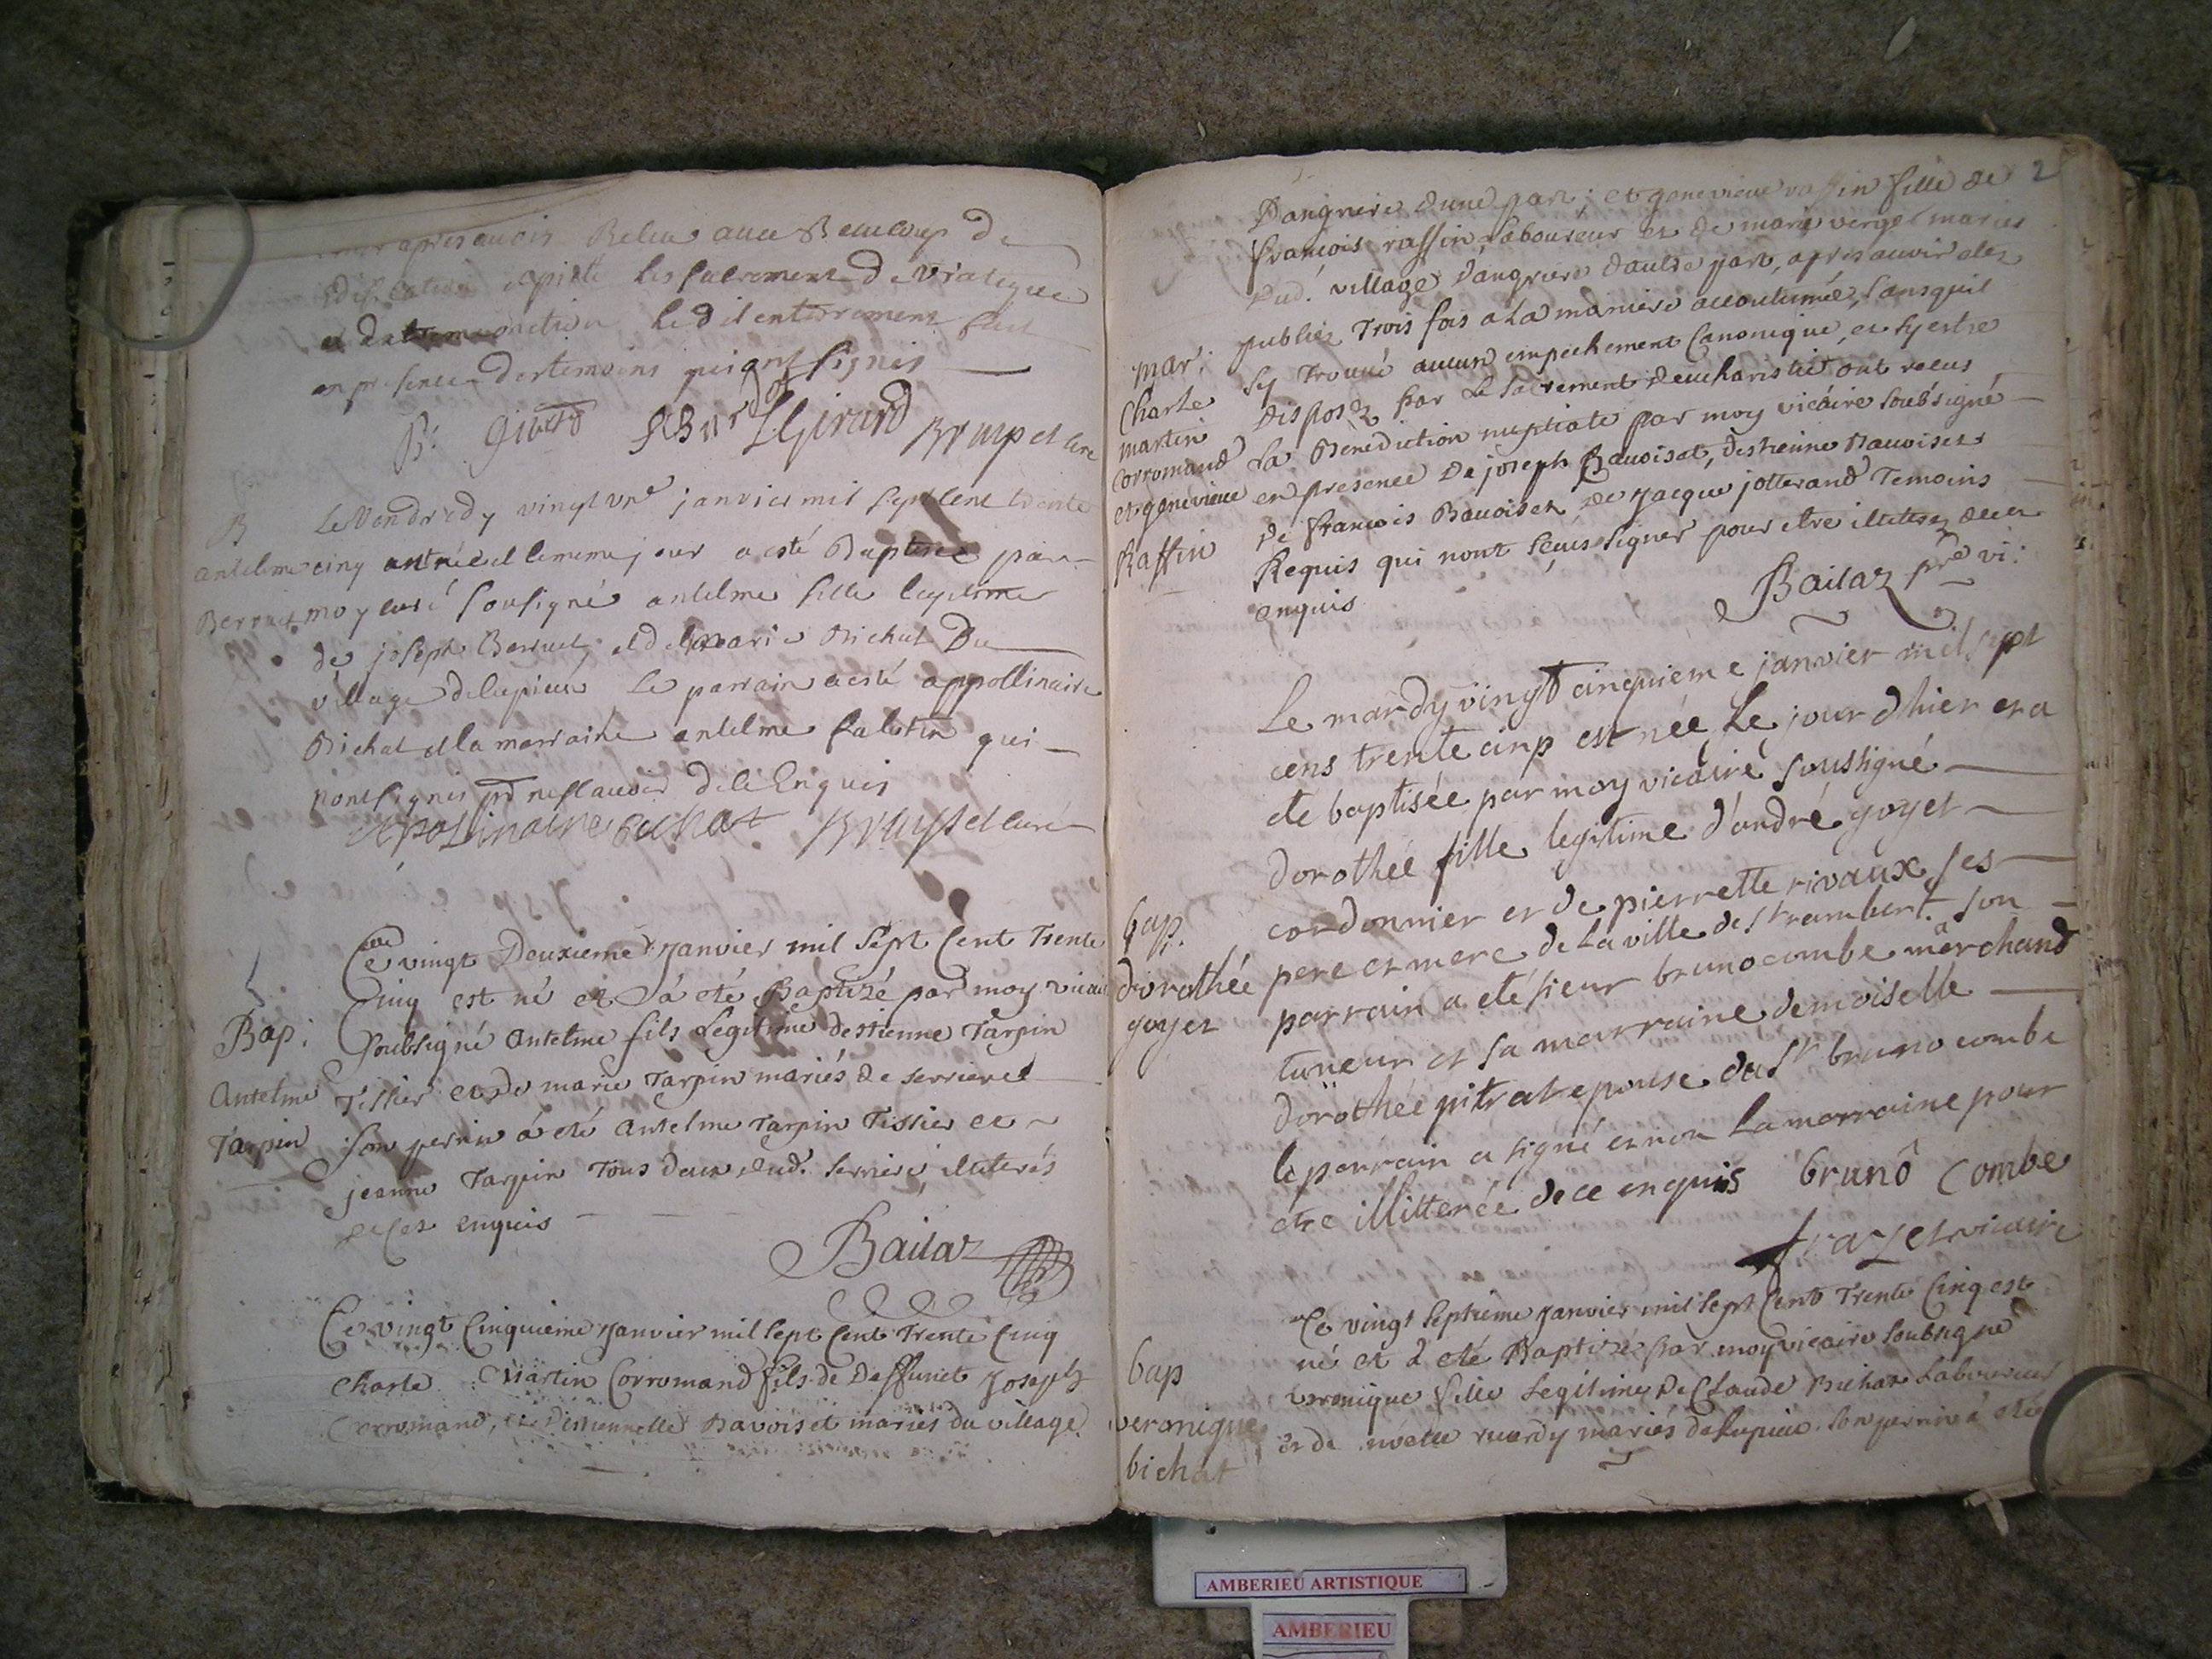 apres avoir Receu avec Beaucoup de
et pieté les sacrements de viatique
et dextremeonction ledit enterrement fait
en presence des temoins qui ont signés
Girard
Le Vendredy vingt un janvier mil sept cent trente
B
anteline cinq est née et le meme jour a esté Baptisée par
Berruet moy curé sousigné antelme fille legitime
de joseph Berruet et de marie Bichat Du
village de lupieu le parrain a esté appollinaire
Bichat et la marraine antelme qui
nont signés pr ne sçavoir de ce Enquis
apollinaire bichat curé
Ce vingt Deuxieme Janvier mil sept Cent Trente
Cinq est né et a été Baptizé par moy vicaire
Bap: soubsigné Antelme fils Legitime destienne Tarpin
Antelme Tissier et de marie Tarpin mariés de serriere
Tarpin Son perrin a été Antelme Tarpin Tissier et
jeanne Tarpin Tous deux dud. serriere, illiterés
de ce enquis
Bailaz
Ce vingt Cinquieme Janvier mil sept Cent Trente Cinq
Charle Martin Corromand fils de Deffunct Joseph
Corromand, et destiennette Bavoiset mariés du village
2
Dangrieré d'une part; et genevieve raffin fille de
francois raffin laboureur et de marie verget mariés
Dud. village Dangriere Daultre part, apres avoir etez
publiez Trois fois a la maniere accoutumée, sans quil
mar: sy trouvé aucun empechement Canonique, et sy estre
Charle Disposez par Le sacrement deucharistie ont receus
martin La Benediction nuptiale par moy vicaire soubsigné
Corromand en presence De joseph Bavoiset, destienne Bavoiset
et genevieve De francois Bavoiset, de Jacque jotterand Temoins
Raffin Requis qui nont sçeus signer pour etre illiterez de ce
enquis
Bailaz pre vi:
Le mardy vingt cinquieme janvier mil sept
cens trente cinq est née Le jour d'hier et a
ete baptisée par moy vicaire soussigné
dorothée fille legitime d'andré goyet
cordonnier et de pierrette rivaux ses
bap. pere et mere de la ville de st rambert. son
dorothée parrain a eté sieur bruno combe marchand
goyet taneur et sa marraine demoiselle
dorothée pitrat epouse du sr bruno combe
le parrain a signé et non La marraine pour
etre illitterée de ce enquis brunô Combe
vicaire
Ce vingt septieme Janvier mil sept Cent Trente Cinq est
bap né et a eté Baptizé par moy vicaire soubsigné
veronique veronique fille Legitime de Claude Bichat Laboureur
bichat et de mariés de Lupieu. son perrin a été
AMBERIEU ARTISTIQUE
AMBERIEU